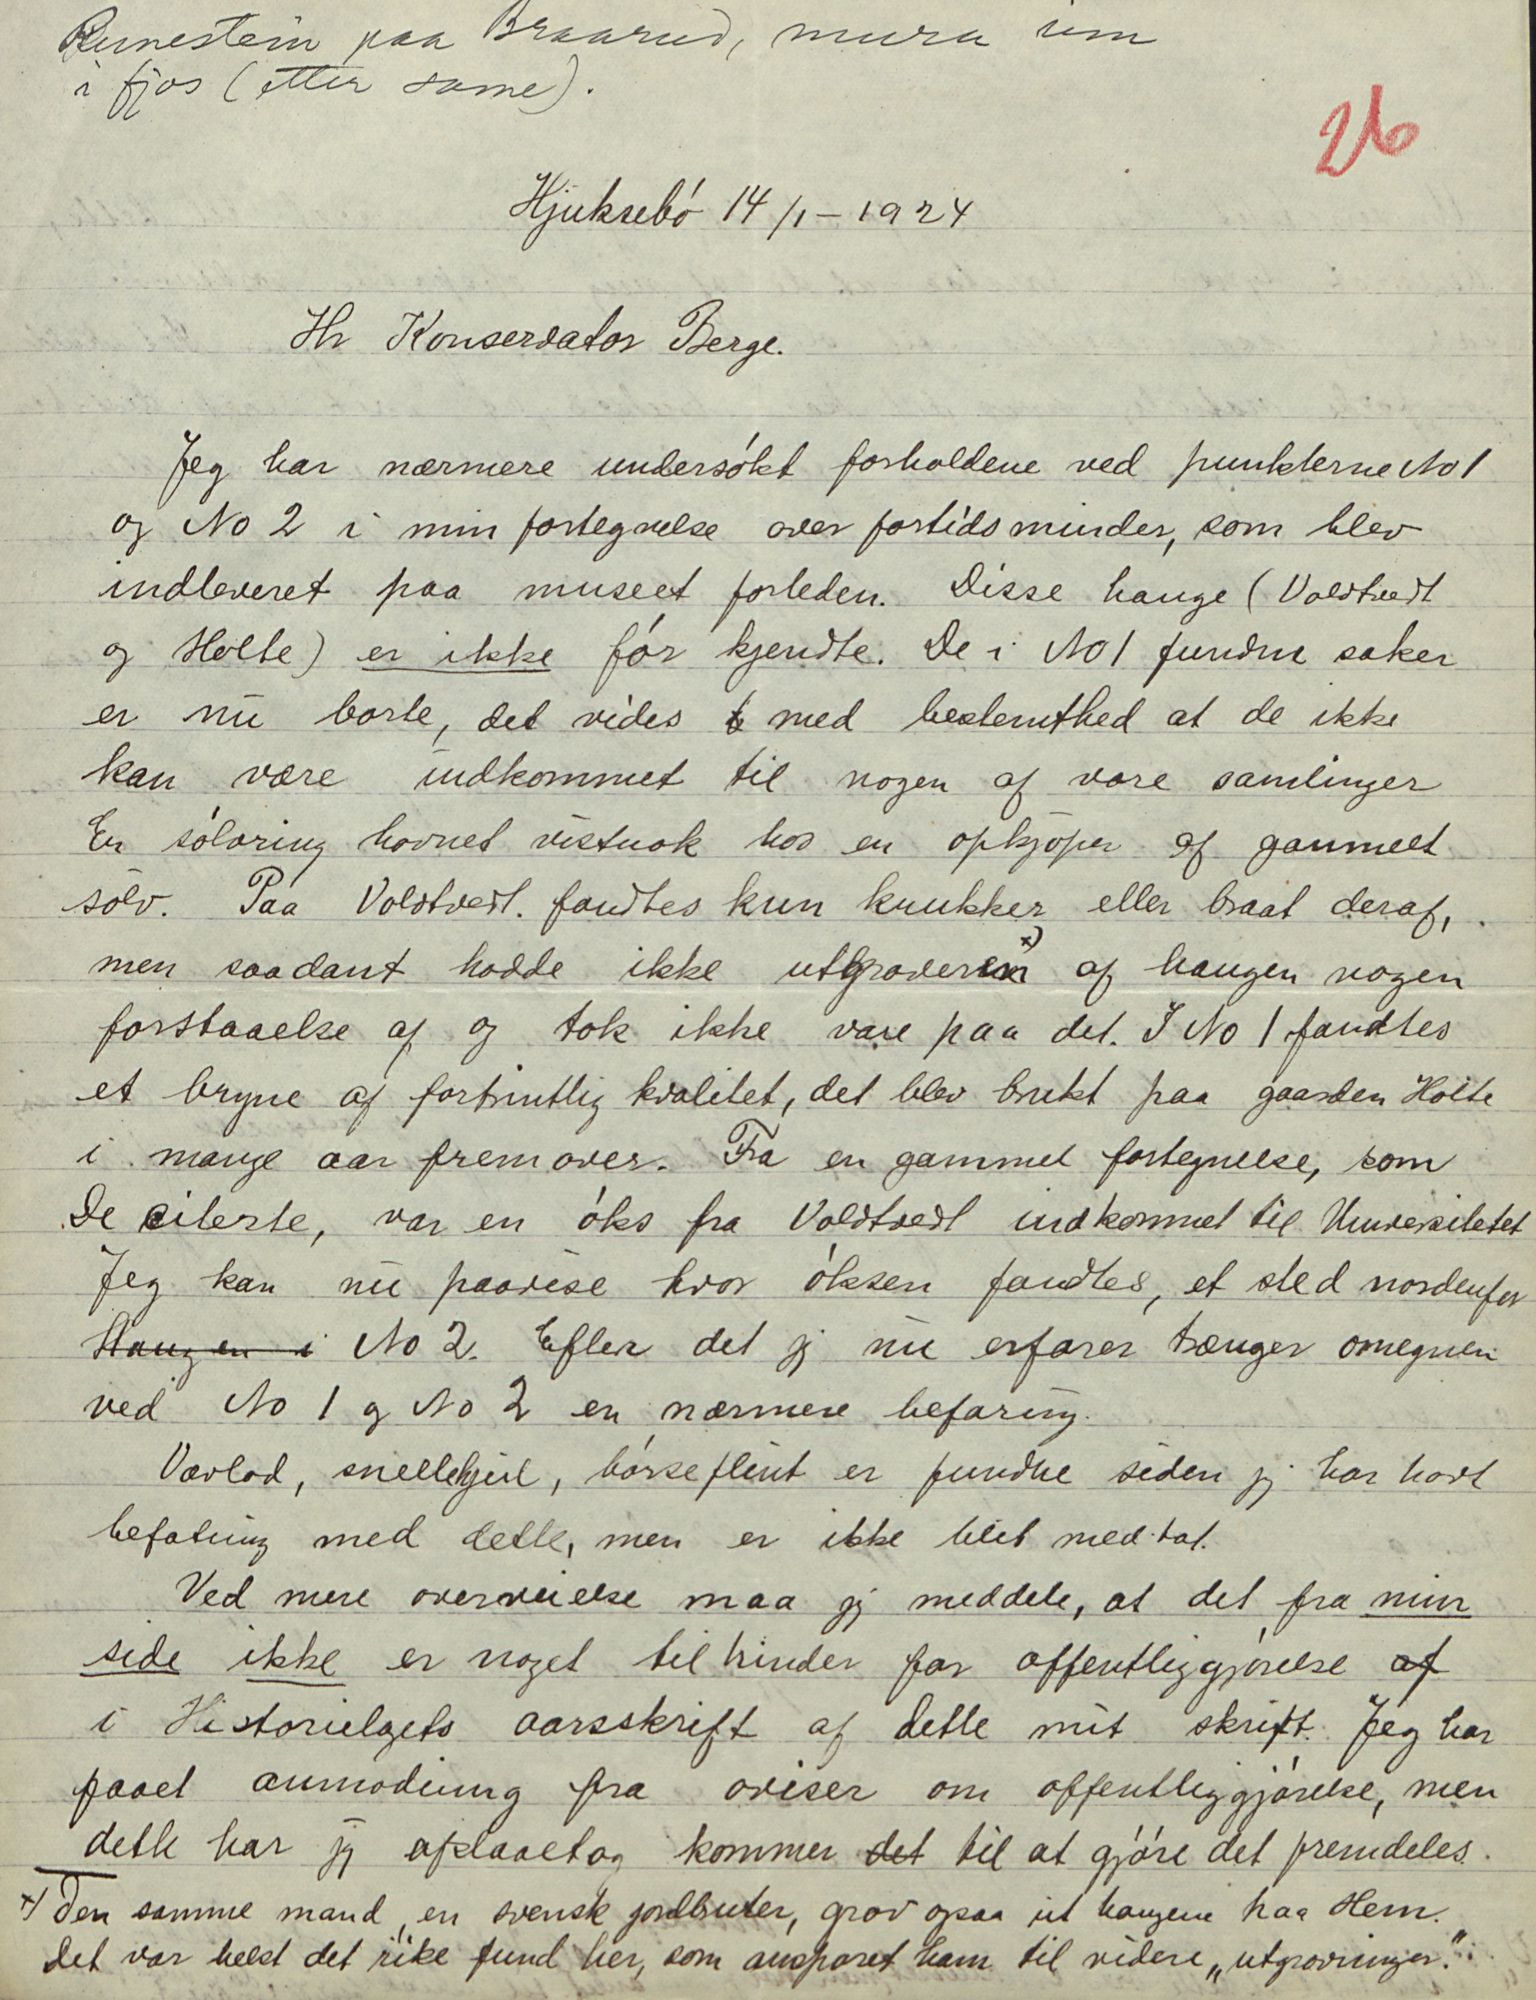 Runestein paa Braarud, mura inn
i fjos (etter same).
26
Hjuksebó 14/1 – 1924
Hr Konservator Berge.
Jeg har nærmere undersókt forholdene ved punkterne No 1
og No 2 i min fortegnelse over fortidsminder, som blev
indleveret paa museet forleden. Disse hauge (Voldtvedt
og Holte) er ikke fór kjendte. De i No 1 fundne saker
er nu borte, det vides med bestemthed at de ikke
kan være indkommet til nogen af vore samlinger
En sólvring havnet vistnok hos en opkjóper af gammelt
sólv. Paa Voldtvedt. fandtes kun krukker eller braat deraf,
men saadant hadde ikke utgraveren x) af haugen nogen
forstaaelse af og tok ikke vare paa det. I No 1 fandtes
et bryne af fortrintlig kvalitet, det blev brukt paa gaarden Holte
i mange aar fremover. Fra en gammel fortegnelse, som
De citerte, var en óks fra Voldtvedt indkommet til Universitetet
Jeg kan nu paavise hvor óksen fandtes, et sted nordenfor
Haugen i No 2. Efter det jg nu erfarer trænger omegnen
ved No 1 og No 2 en nærmere befaring.
Vævlod, snellehjul, bórseflint er fundne siden jg har havt
befatning med dette, men er ikke blit med tat.
Ved mere overveielse maa jg meddele, at det fra min
side ikke er noget til hinder for offentliggjórelse af
i Historielagets aarsskrift af dette mit skrift. Jeg har
faaet anmodning fra aviser om offentliggjórelse, men
dette har jg afslaaet og kommer det til at gjóre det fremdeles.
x) Den samme mand, en svensk jordbruter, grov ogsaa ut haugene paa Hem.
Det var helst det rike fund her, som ansporet ham til videre „utgravninger".